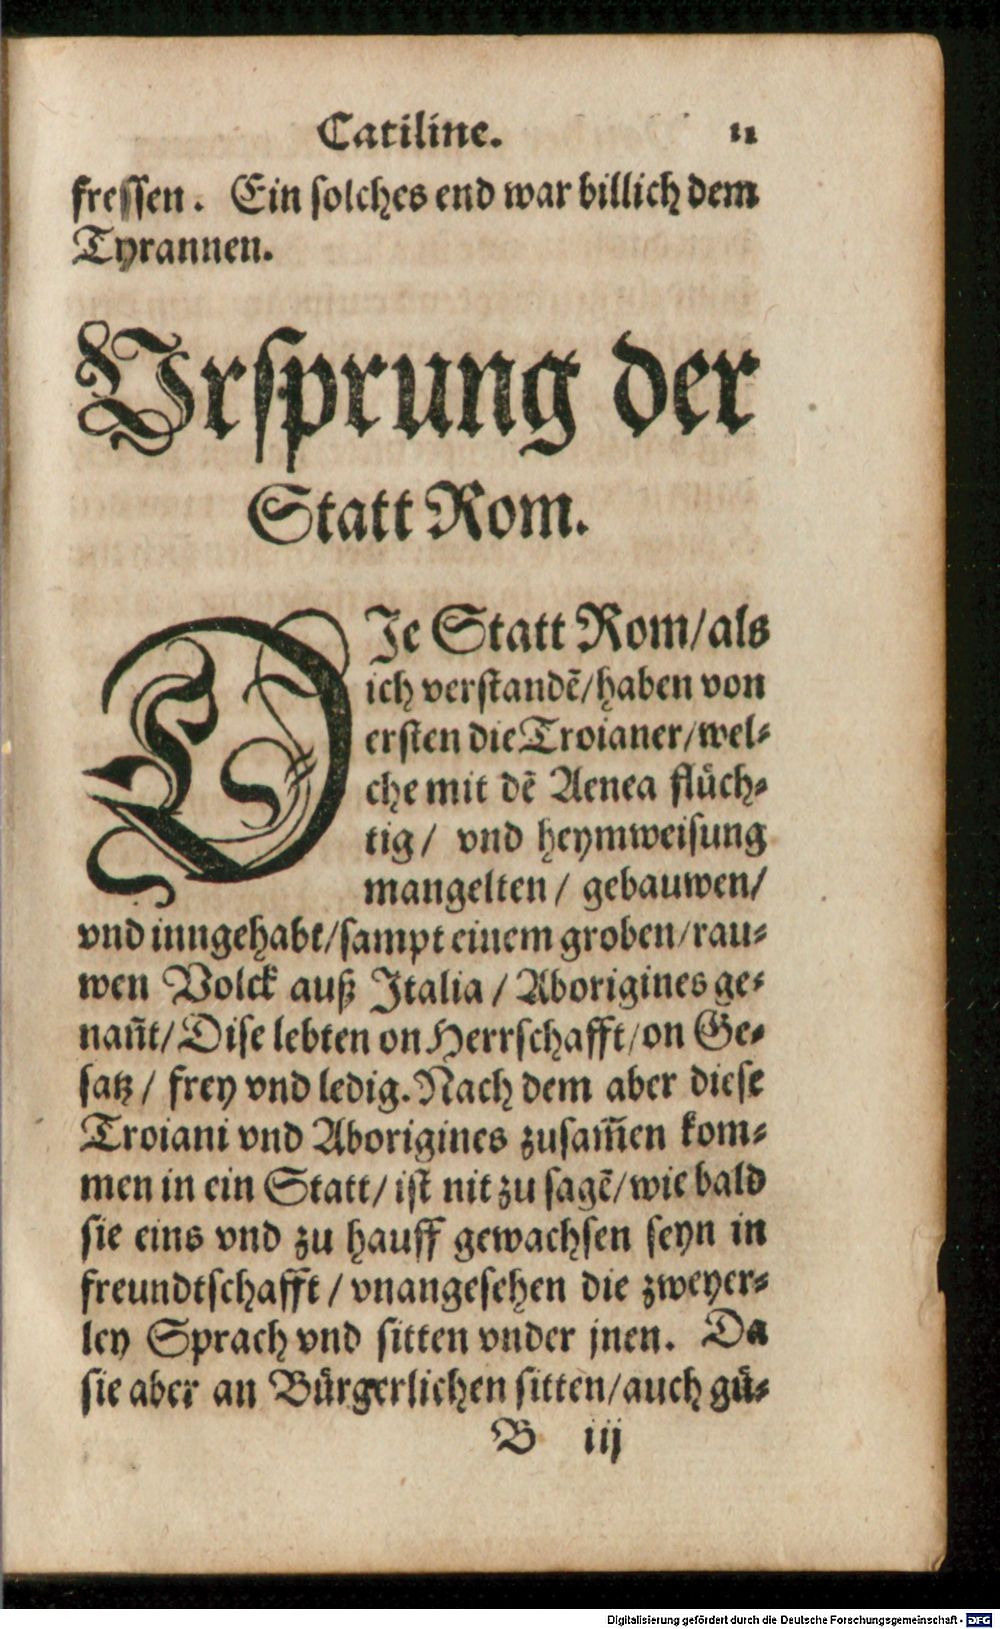 Catiline. 11
fressen. Ein solches end war billich dem
Tyrannen.
Vrsprung der
Statt Rom.
DJe Statt Rom/als
ich verstandē/haben von
ersten die Troianer/wel⸗
che mit dē Aenea flüch⸗
tig/ vnd heymweisung
mangelten/ gebauwen/
vnd inngehabt/sampt einem groben/rau⸗
wen Volck auß Jtalia/Aborigines ge⸗
nañt/Dise lebten on Herrschafft/on Ge⸗
satz/ frey vnd ledig. Nach dem aber diese
Troiani vnd Aborigines zusam̃en kom⸗
men in ein Statt/ist nit zu sagē/wie bald
sie eins vnd zu hauff gewachsen seyn in
freundtschafft/vnangesehen die zweyer⸗
ley Sprach vnd sitten vnder jnen. Da
sie aber an Bürgerlichen sitten/auch gü⸗
B iij
Digitalisierung gefördert durch die Deutsche Forschungsgemeinschaft - DFG